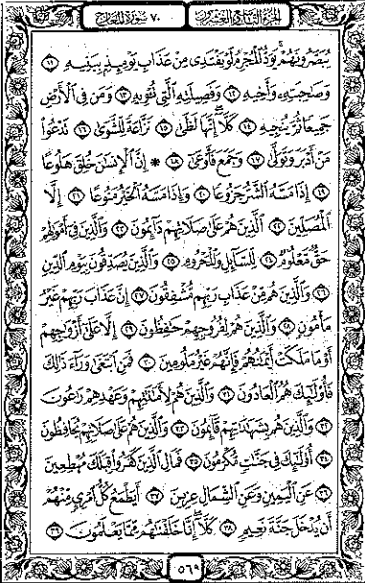 الجزء التاسع والعشرون ٧٠ سورة المعارج
يُبَصَّرُونَهُمْ يَوَدُّ الْمُجْرِمُ لَوْ يَفْتَدِى مِنْ عَذَابِ يَوْمِئِذٍ بِبَنِيهِ ١١
وَصَاحِبَتِهِ وَأَخِيهِ ١٢ وَفَصِيلَتِهِ الَّتِى تُـْٔوِيهِ ١٣ وَمَن فِى الْأَرْضِ
جَمِيعًا ثُمَّ يُنجِيهِ ١٤ كَلَّا إِنَّهَا لَظَىٰ ١٥ نَزَّاعَةً لِّلشَّوَىٰ ١٦ تَدْعُوا۟
مَنْ أَدْبَرَ وَتَوَلَّىٰ ١٧ وَجَمَعَ فَأَوْعَىٰ ١٨ * إِنَّ الْإِنسَـٰنَ خُلِقَ هَلُوعًا
١٩ إِذَا مَسَّهُ الشَّرُّ جَزُوعًا ٢٠ وَإِذَا مَسَّهُ الْخَيْرُ مَنُوعًا ٢١ إِلَّا
الْمُصَلِّينَ ٢٢ الَّذِينَ هُمْ عَلَىٰ صَلَاتِهِمْ دَآئِمُونَ ٢٣ وَالَّذِينَ فِىٓ أَمْوَٰلِهِمْ
حَقٌّ مَّعْلُومٌ ٢٤ لِّلسَّآئِلِ وَالْمَحْرُومِ ٢٥ وَالَّذِينَ يُصَدِّقُونَ بِيَوْمِ الدِّينِ
٢٦ وَالَّذِينَ هُم مِّنْ عَذَابِ رَبِّهِم مُّشْفِقُونَ ٢٧ إِنَّ عَذَابَ رَبِّهِمْ غَيْرُ
مَأْمُونٍ ٢٨ وَالَّذِينَ هُمْ لِفُرُوجِهِمْ حَـٰفِظُونَ ٢٩ إِلَّا عَلَىٰٓ أَزْوَٰجِهِمْ
أَوْ مَا مَلَكَتْ أَيْمَـٰنُهُمْ فَإِنَّهُمْ غَيْرُ مَلُومِينَ ٣٠ فَمَنِ ابْتَغَىٰ وَرَآءَ ذَٰلِكَ
فَأُو۟لَـٰٓئِكَ هُمُ الْعَادُونَ ٣١ وَالَّذِينَ هُمْ لِأَمَـٰنَـٰتِهِمْ وَعَهْدِهِمْ رَٰعُونَ
٣٢ وَالَّذِينَ هُم بِشَهَـٰدَٰتِهِمْ قَآئِمُونَ ٣٣ وَالَّذِينَ هُمْ عَلَىٰ صَلَاتِهِمْ يُحَافِظُونَ
٣٤ أُو۟لَـٰٓئِكَ فِى جَنَّـٰتٍ مُّكْرَمُونَ ٣٥ فَمَالِ الَّذِينَ كَفَرُوا۟ قِبَلَكَ مُهْطِعِينَ
٣٦ عَنِ الْيَمِينِ وَعَنِ الشِّمَالِ عِزِينَ ٣٧ أَيَطْمَعُ كُلُّ امْرِئٍ مِّنْهُمْ
أَن يُدْخَلَ جَنَّةَ نَعِيمٍ ٣٨ كَلَّآ إِنَّا خَلَقْنَـٰهُم مِّمَّا يَعْلَمُونَ ٣٩
٥٦٩